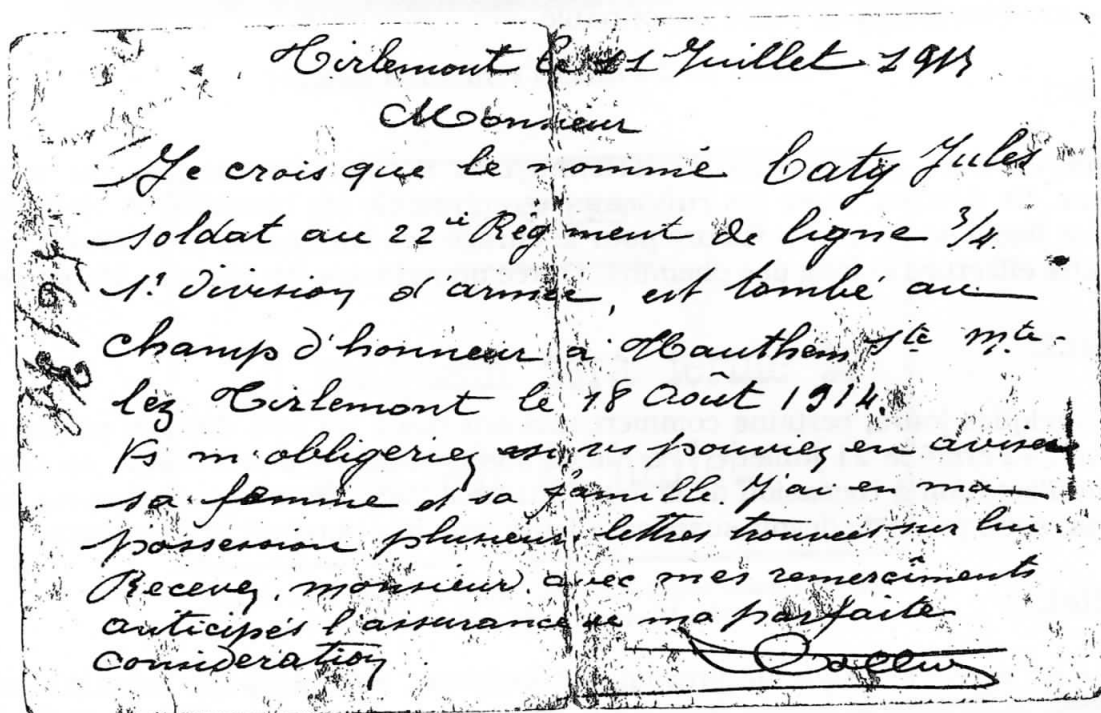 Tirlemont le 11 Juillet 1915
Monsieur
Je crois que le nommé Caty Jules
soldat au 22e Régiment de ligne 3/4
1e division d'armée, est tombé au
champ d'honneur à Hauthem Ste Mte
lez Tirlemont le 18 Août 1914.
Vs m'obligeriez si vs pouviez en aviser
sa femme et sa famille. J'ai en ma
possession plusieurs lettres trouvées sur lui
Recevez, monsieur, avec mes remercîments
anticipés l'assurance de ma parfaite
consideration